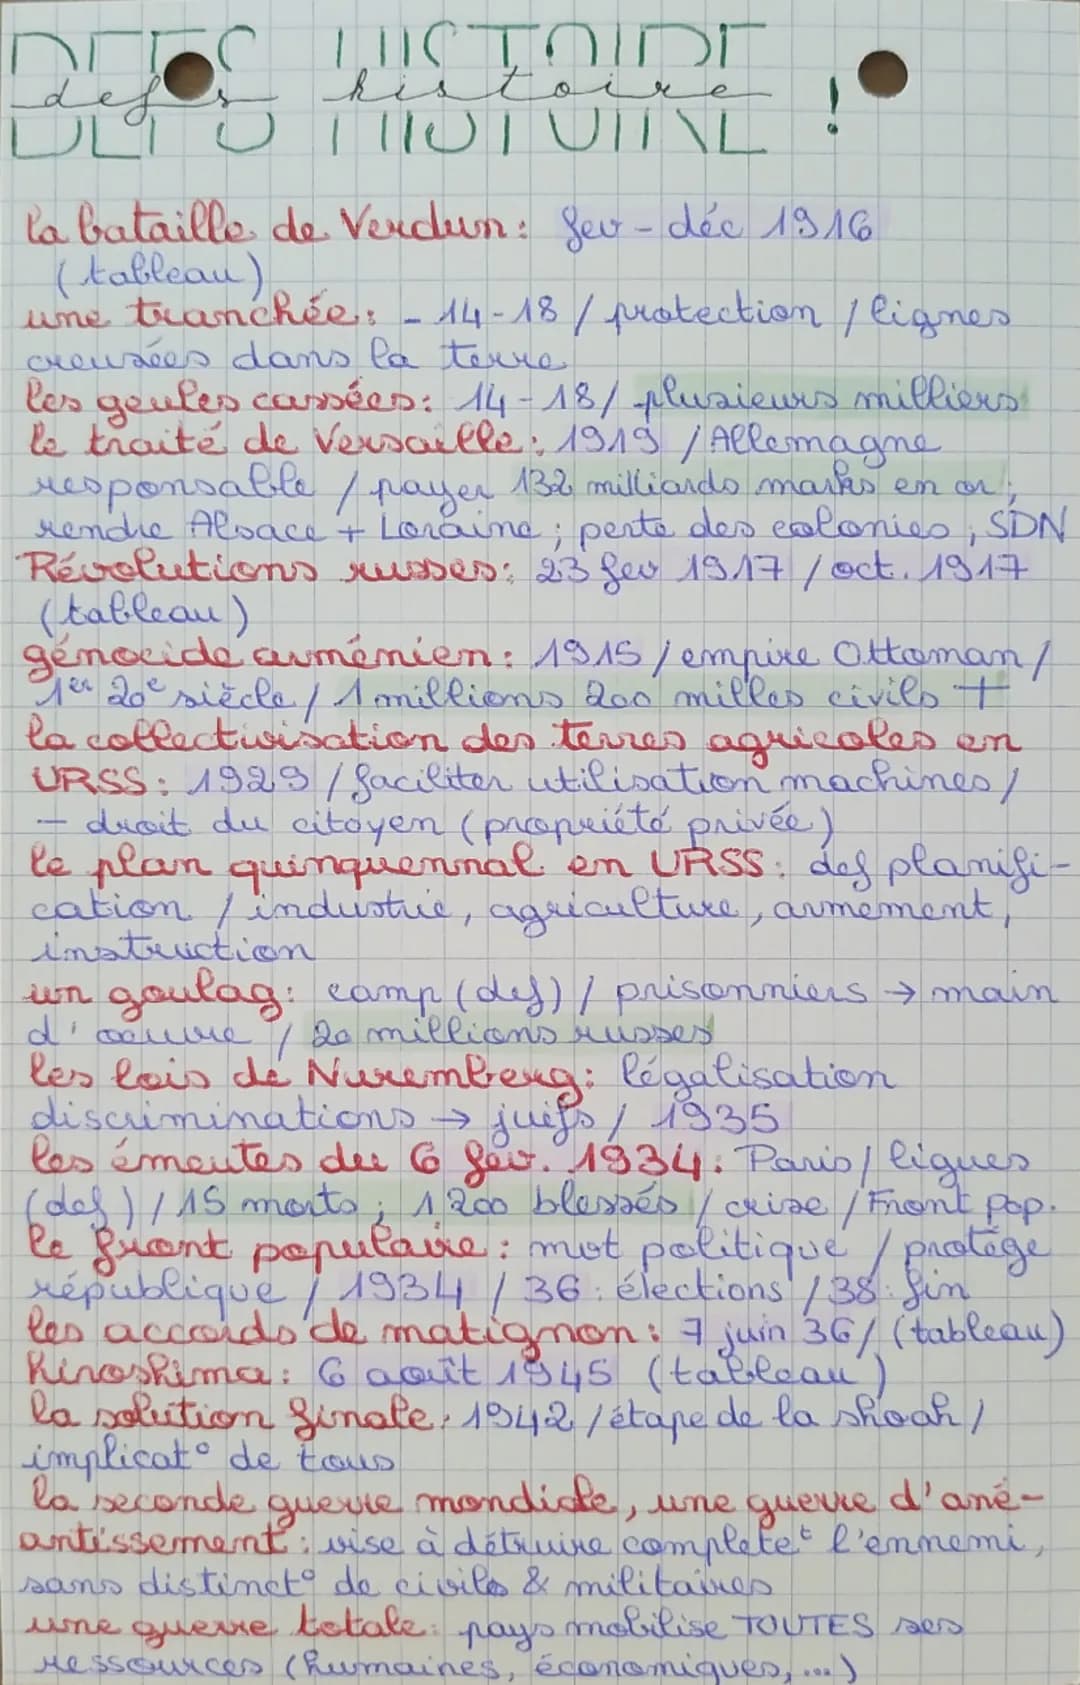 DEFS HISTOIRE
defs histoire !
la bataille de Verdun: fev - déc 1916
(tableau)
une tranchée: - 14-18 / protection / lignes
creusées dans la terre
les geules cassées: 14-18/ plusieurs milliers
le traité de Versaille: 1919 / Allemagne
responsable / payer 132 milliards marks en or;
rendre Alsace + Loraine; perte des colonies; SDN
Révolutions russes: 23 fev 1917 / oct. 1917
(tableau)
génocide arménien: 1915 / empire Ottoman /
1er 20e siècle / 1 millions 200 milles civils +
la collectivisation des terres agricoles en
URSS: 1929 / faciliter utilisation machines /
- droit du citoyen (propriété privée)
le plan quinquennal en URSS: def planifi-
cation / industrie, agriculture, armement,
instruction
un goulag: camp (def) / prisonniers → main
d'oeuvre / 20 millions russes
les lois de Nuremberg: légalisation
discriminations → juifs / 1935
les émeutes du 6 fev. 1934: Paris / ligues
(def) / 15 morts; 1 200 blessés / crise / Front pop.
le front populaire: mvt politique / protège
république / 1934 / 36: élections / 38: fin
les accords de matignon: 7 juin 36/ (tableau)
hiroshima: 6 août 1945 (tableau)
la solution finale: 1942 / étape de la shoah /
implicat° de tous
la seconde guerre mondiale, une guerre d'ané-
antissement: vise à détruire complètet l'ennemi,
sans distinct° de civils & militaires
une guerre totale: pays mobilise TOUTES ses
ressources (humaines, économiques, ...)